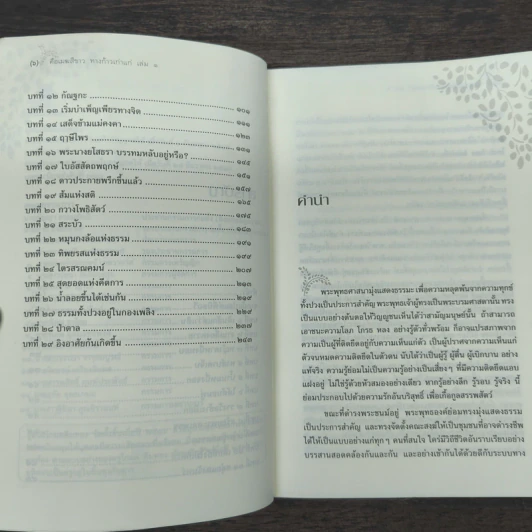 (๖) คือเมฆสีขาว ทางก้าวเก่าแก่ เล่ม ๑
บทที่ ๑๒ กัณฐกะ ๑๐๑
บทที่ ๑๓ เริ่มบำเพ็ญเพียรทางจิต ๑๐๗
บทที่ ๑๔ เสด็จข้ามแม่คงคา ๑๑๑
บทที่ ๑๕ ฤๅษีไพร ๑๒๓
บทที่ ๑๖ พระนางยโสธรา บรรทมหลับอยู่หรือ? ๑๓๑
บทที่ ๑๗ ใบอัสสัตถพฤกษ์ ๑๔๕
บทที่ ๑๘ ดาวประกายพรึกขึ้นแล้ว ๑๕๑
บทที่ ๑๙ ส้มแห่งสติ ๑๕๗
บทที่ ๒๐ กวางโพธิสัตว์ ๑๖๕
บทที่ ๒๑ สระบัว ๑๗๕
บทที่ ๒๒ หมุนกงล้อแห่งธรรม ๑๙๑
บทที่ ๒๓ ทิพยรสแห่งธรรม ๑๙๙
บทที่ ๒๔ ไตรสรณคมน์ ๒๐๗
บทที่ ๒๕ สุดยอดแห่งคีตการ ๒๑๓
บทที่ ๒๖ น้ำลอยขึ้นได้เช่นกัน ๒๑๙
บทที่ ๒๗ ธรรมทั้งปวงอยู่ในกองเพลิง ๒๒๙
บทที่ ๒๘ ป่าตาล ๒๓๗
บทที่ ๒๙ อิงอาศัยกันเกิดขึ้น ๒๔๓
คำนำ
พระพุทธศาสนามุ่งแสดงธรรมะ เพื่อความหลุดพ้นจากความทุกข์
ทั้งปวงเป็นประการสำคัญ พระพุทธเจ้าผู้ทรงเป็นพระบรมศาสดานั้น ทรง
เป็นแบบอย่างอันต่อให้ไวญูชนเห็นได้ว่าสามัญมนุษย์นั้น ถ้าสามารถ
เอาชนะความโลภ โกรธ หลง อย่างรู้ตัวทั่วพร้อม ก็อาจแปรสภาพจาก
ความเป็นผู้ที่ติดยึดอยู่กับความเห็นแก่ตัว เป็นผู้ปราศจากความเห็นแก่
ตัวจนหมดความติดยึดในตัวตน นับได้ว่าเป็นผู้รู้ ผู้ตื่น ผู้เบิกบาน อย่าง
แท้จริง ความรู้ย่อมไม่เป็นความรู้อย่างเป็นเสี่ยงๆ ที่มีความติดยึดแอบ
แฝงอยู่ ไม่ใช่รู้ด้วยหัวสมองอย่างเดียว หากรู้อย่างลึก รู้รอบ รู้จริง นี้
ย่อมประกอบไปด้วยความรักอันบริสุทธิ์ เพื่อเกื้อกูลสรรพสัตว์
ขณะที่ดำรงพระชนม์อยู่ พระพุทธองค์ย่อมทรงมุ่งแสดงธรรม
เป็นประการสำคัญ และทรงจัดตั้งคณะสงฆ์ให้เป็นชุมชนที่อาจดำรงชีพ
ได้ให้เป็นแบบอย่างแก่ทุกๆ คนที่สนใจ ใคร่มีวิถีชีวิตอันราบเรียบอย่าง
บรรสานสอดคล้องกันและกัน และอย่างเข้ากันได้ด้วยดีกับระบบทาง